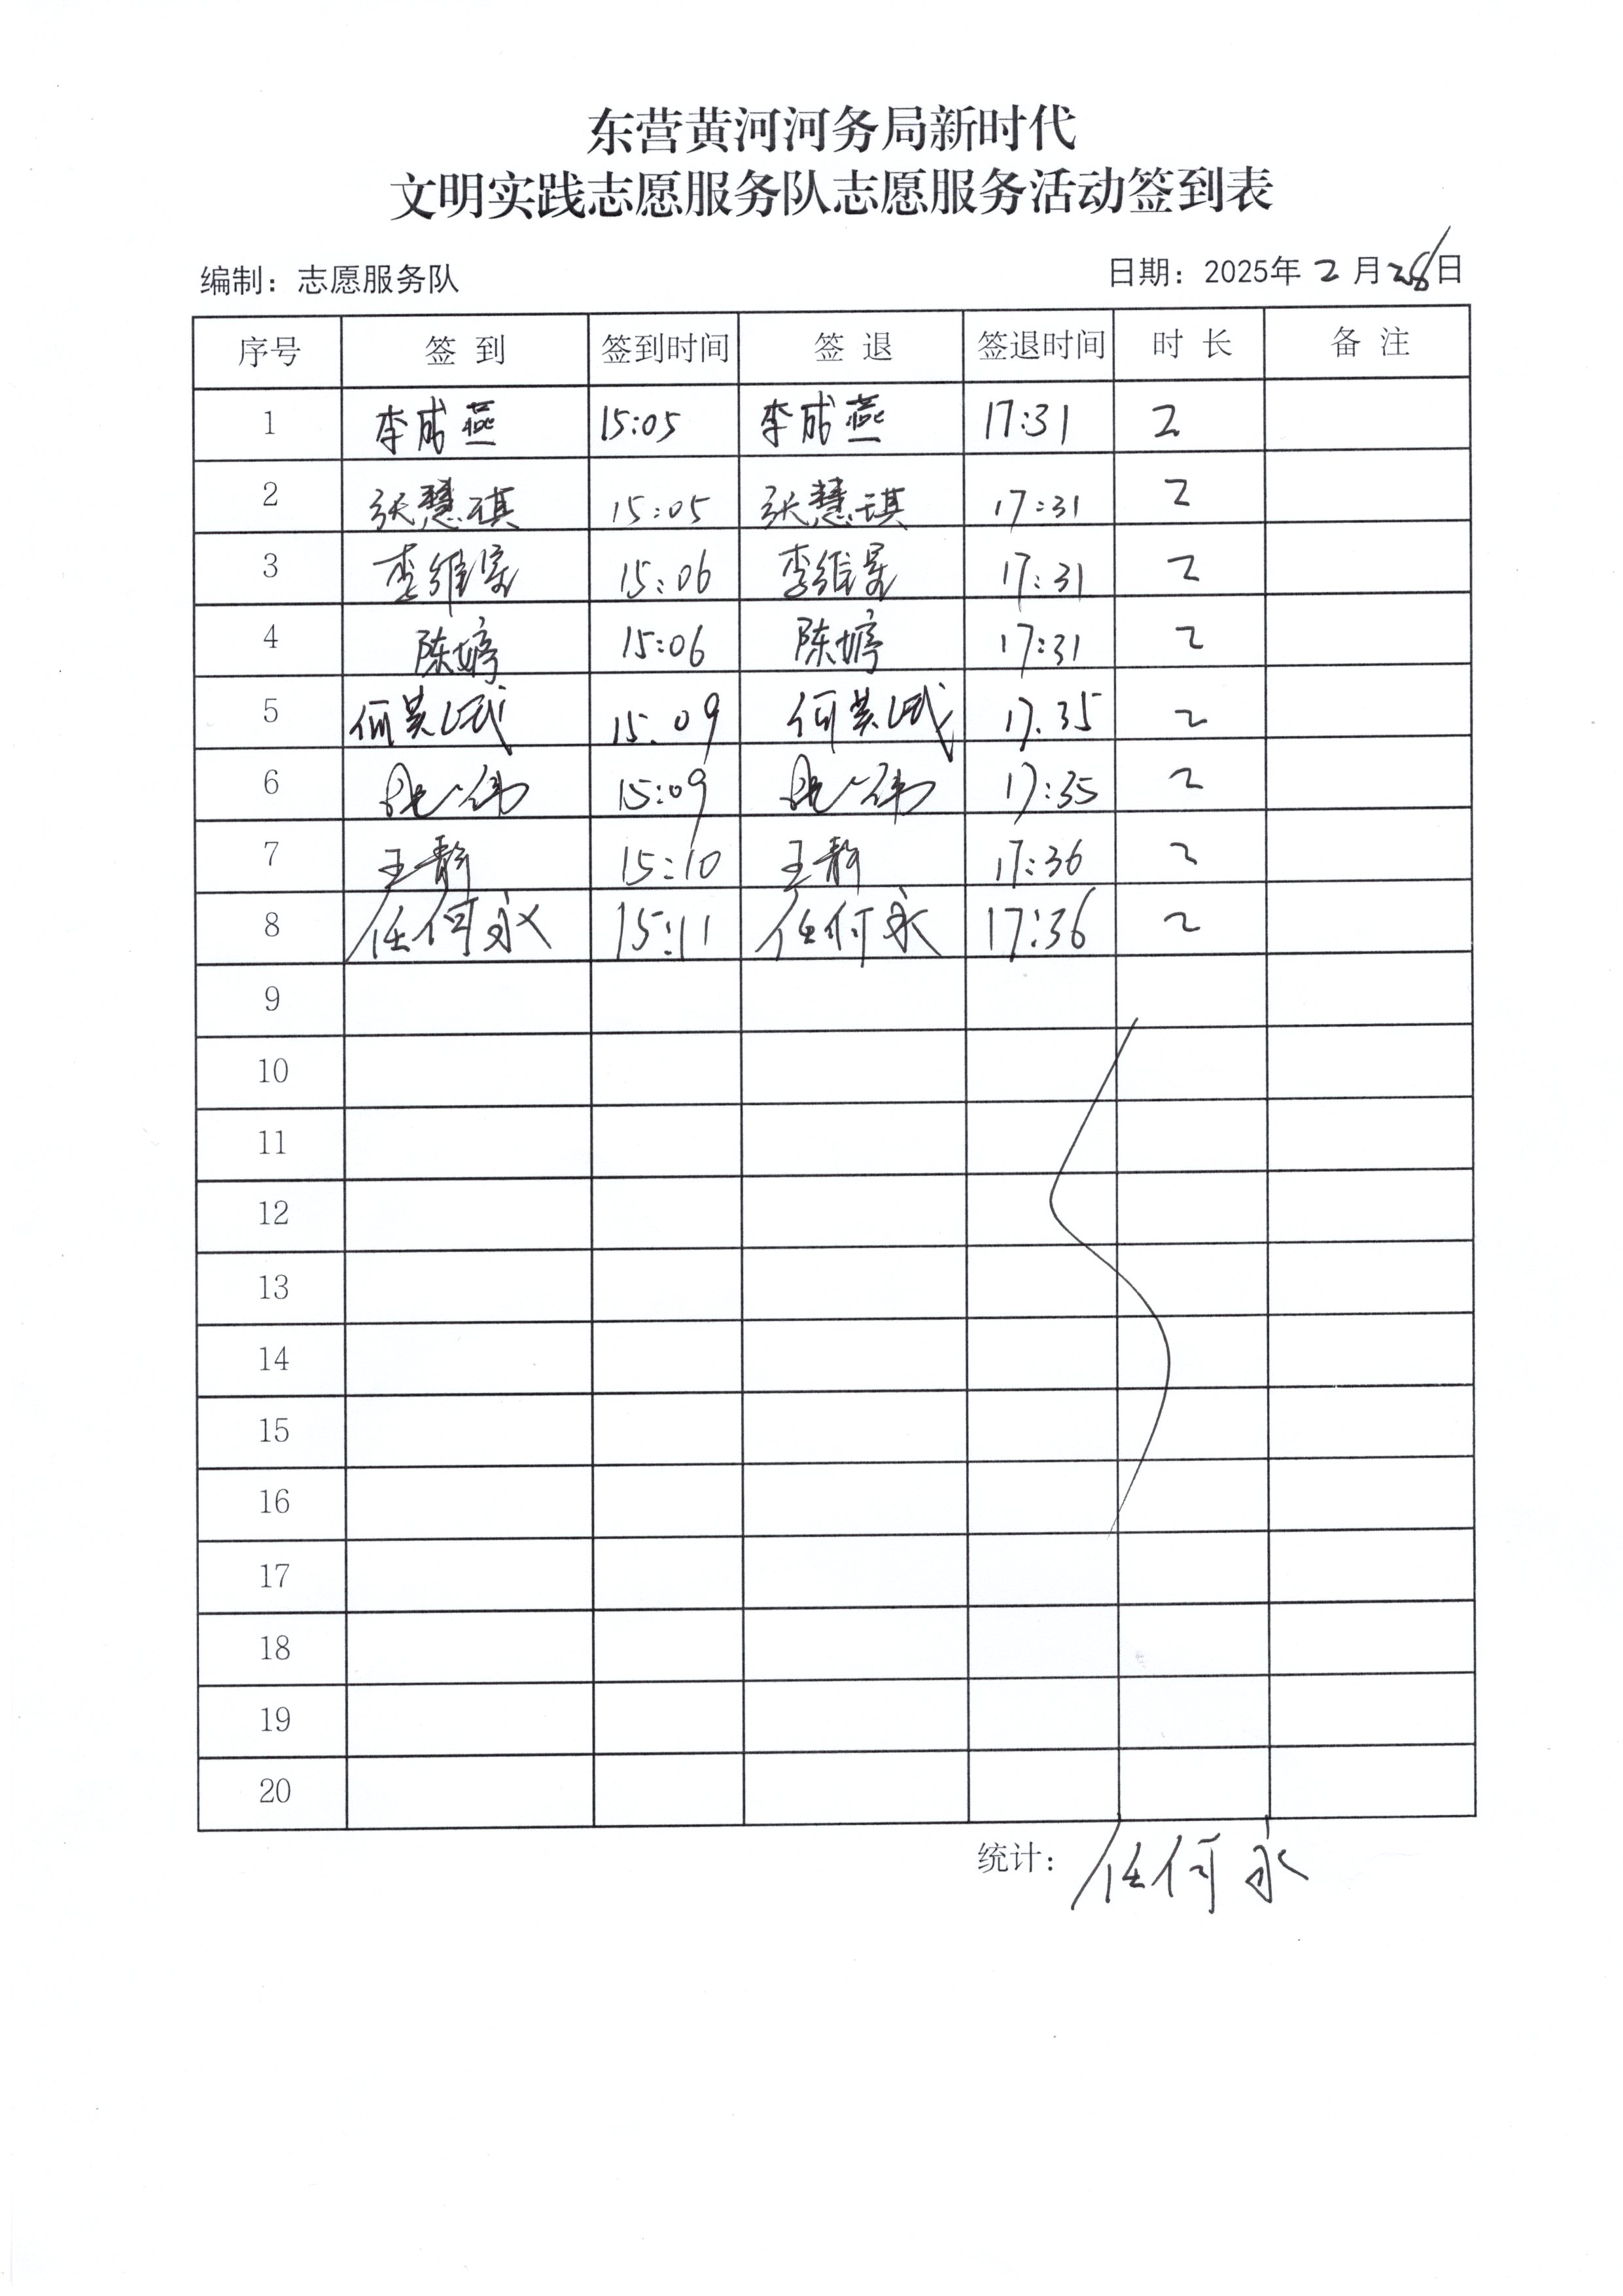 东营黄河河务局新时代
文明实践志愿服务队志愿服务活动签到表
编制：志愿服务队 日期：2025年 2 月 28 日
序号 签 到 签到时间 签 退 签退时间 时 长 备 注
1 李成燕 15:05 李成燕 17:31 2
2 张慧琪 15:05 张慧琪 17:31 2
3 李维 15:06 李维 17:31 2
4 陈婷 15:06 陈婷 17:31 2
5 何 15:09 何 17:35 2
6 15:09 17:35 2
7 王静 15:10 王静 17:36 2
8 任何永 15:11 任何永 17:36 2
9
10
11
12
13
14
15
16
17
18
19
20
统计：任何永